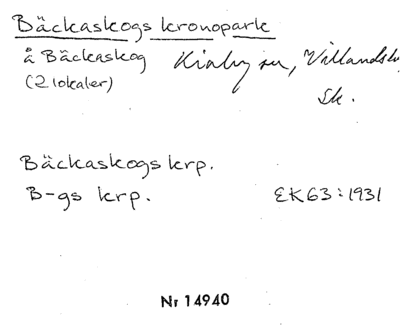 Bäckaskogs kronopark
å Bäckaskog Kiaby sn, Villands h
(2 lokaler) Sk.
Bäckaskogs krp.
B-gs krp. EK63:1931
Nr 14940